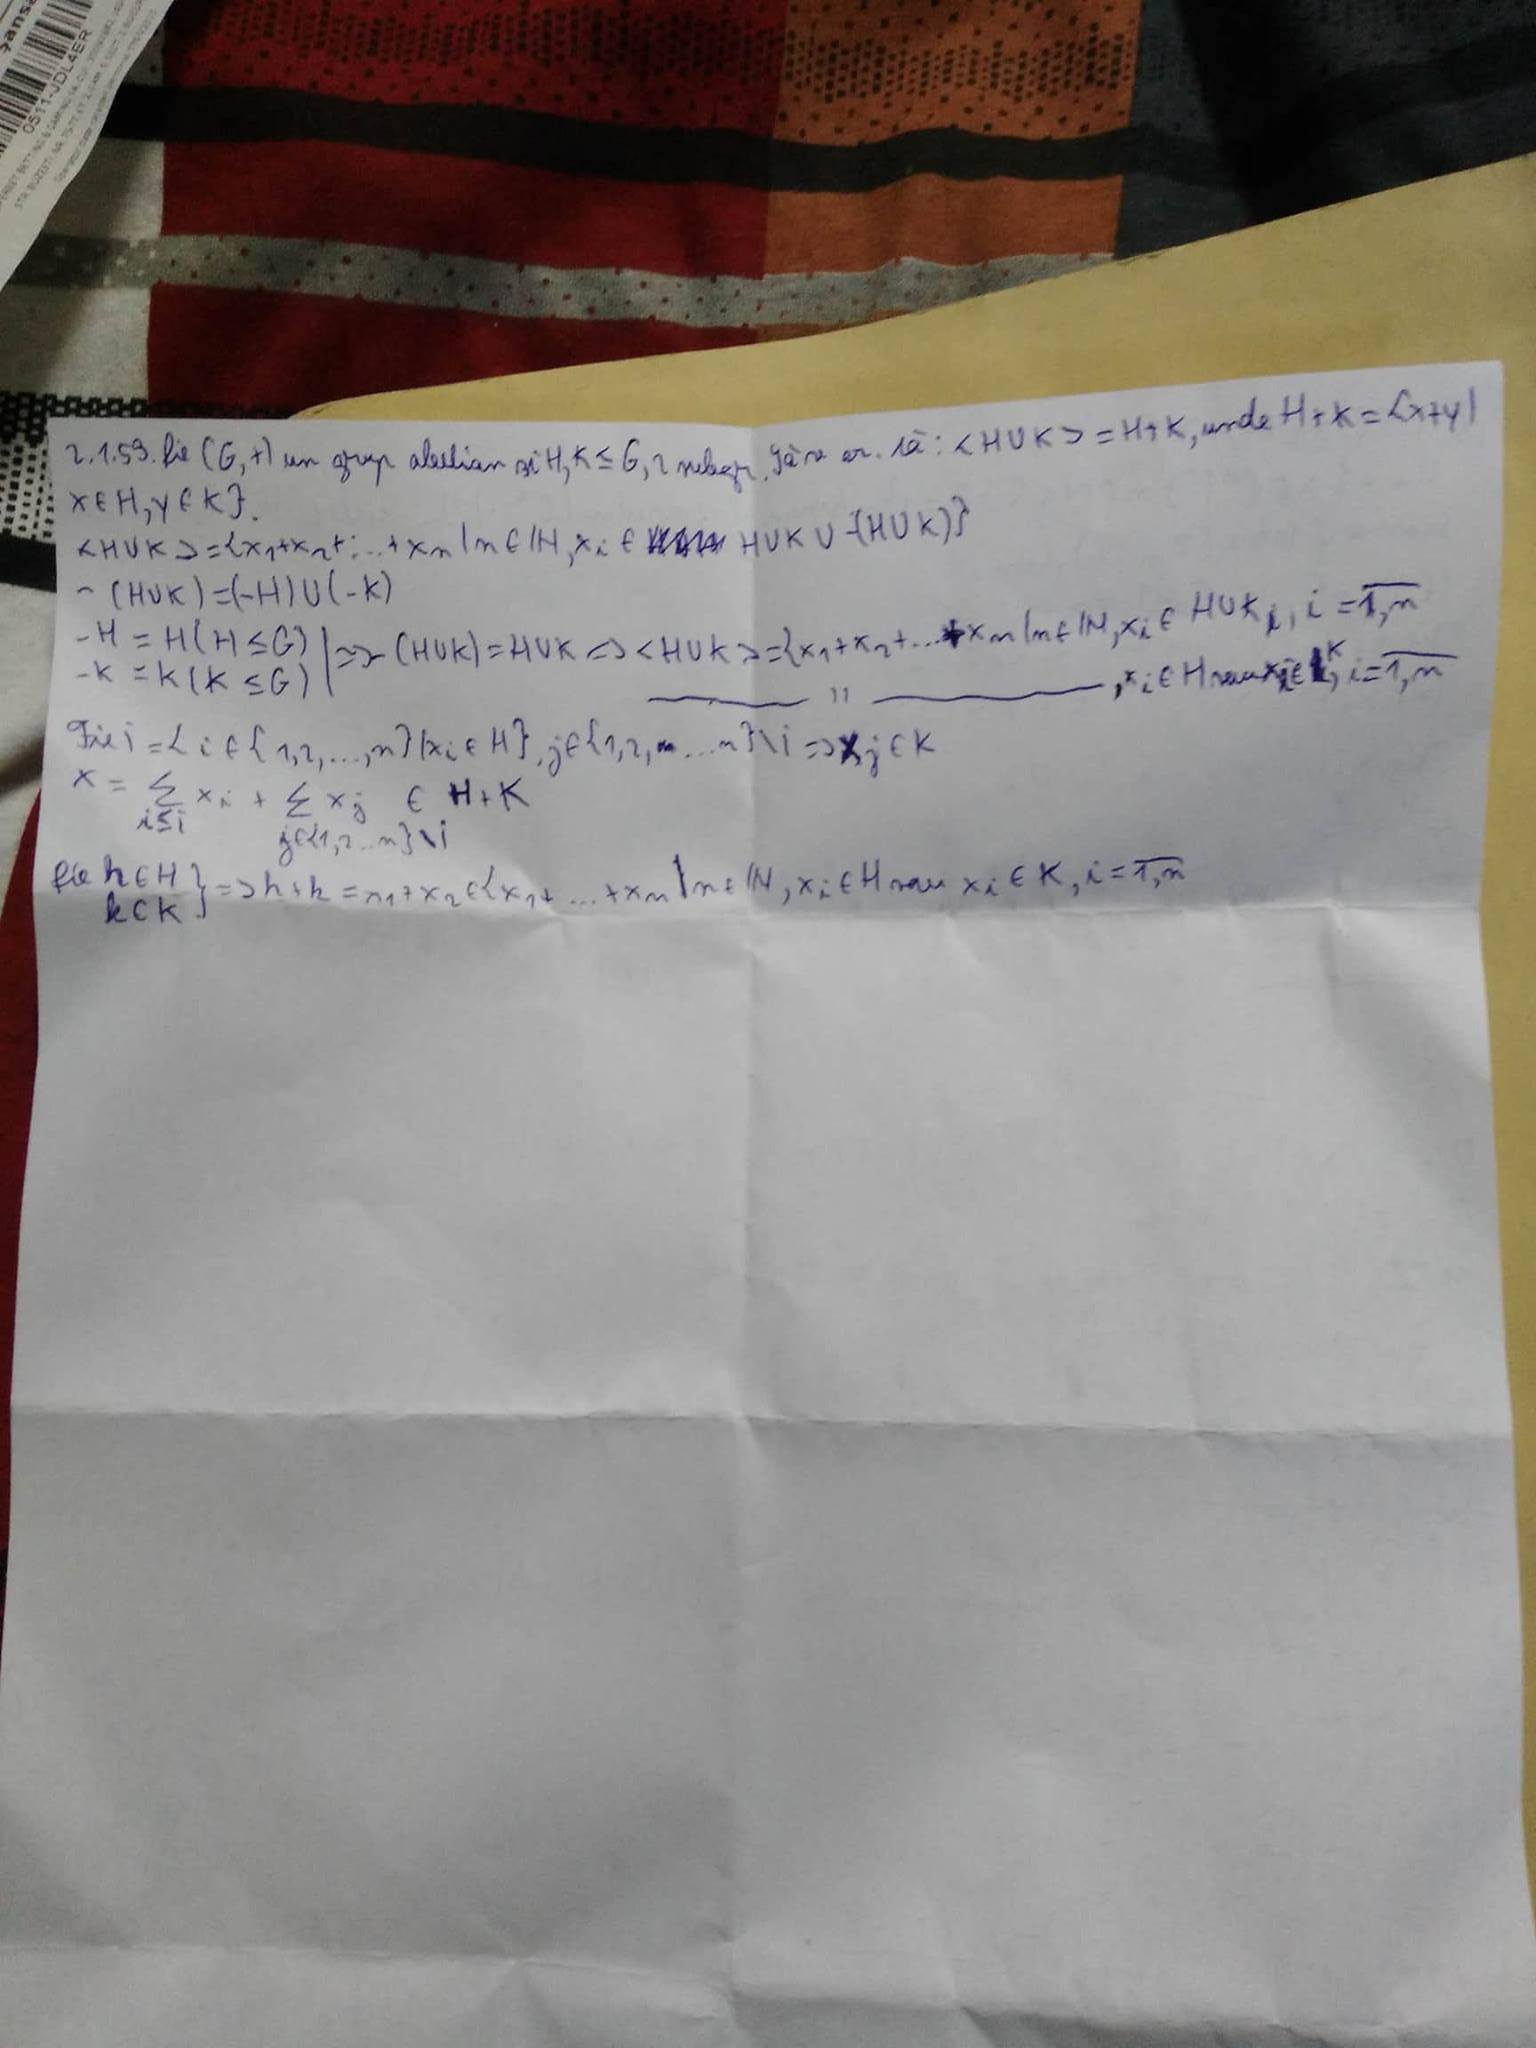 0511-JDL4ER
2.1.59. Fie (G,+) un grup abelian și H,K≤G, 2 subgr. Să se ar. că: <H∪K>=H+K, unde H+K={x+y|
x∈H,y∈K}.
<H∪K>={x₁+x₂+...+xₙ|n∈ℕ,xᵢ∈ H∪K∪-(H∪K)}
-(H∪K)=(-H)∪(-K)
-H=H(H≤G) |=>-(H∪K)=H∪K=><H∪K>={x₁+x₂+...+xₙ|n∈ℕ,xᵢ∈H∪K, i=1,n
-K=K(K≤G) | —— 11 ——,xᵢ∈H sau xᵢ∈K, i=1,n
Fie i={i∈{1,2,...,n}|xᵢ∈H}, j∈{1,2,...n}\i=>xⱼ∈K
x= Σ xᵢ + Σ xⱼ ∈ H+K
i≤i j∈{1,2...n}\i
Fie h∈H }=>h+k=x₁+x₂∈{x₁+...+xₙ|n∈ℕ,xᵢ∈H sau xᵢ∈K, i=1,n
k∈K